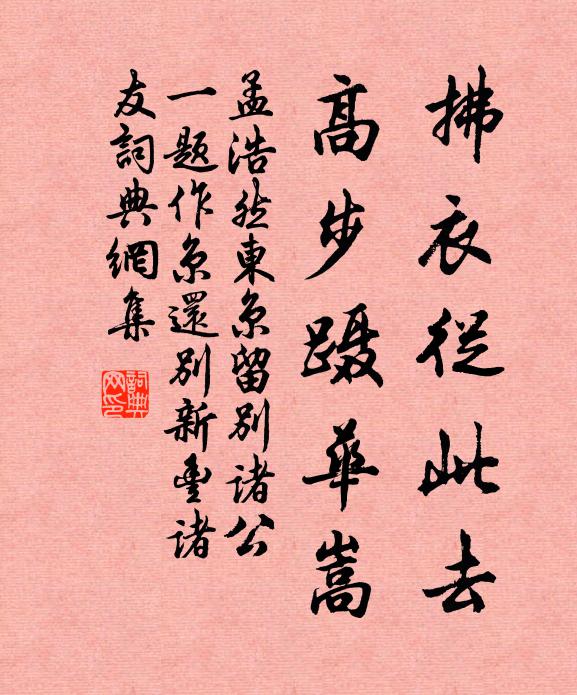 拂衣從此去
高步蹑華嵩
孟浩然東京留別諸公
一题作京還別新豊諸
友詞典網集
詞典网印